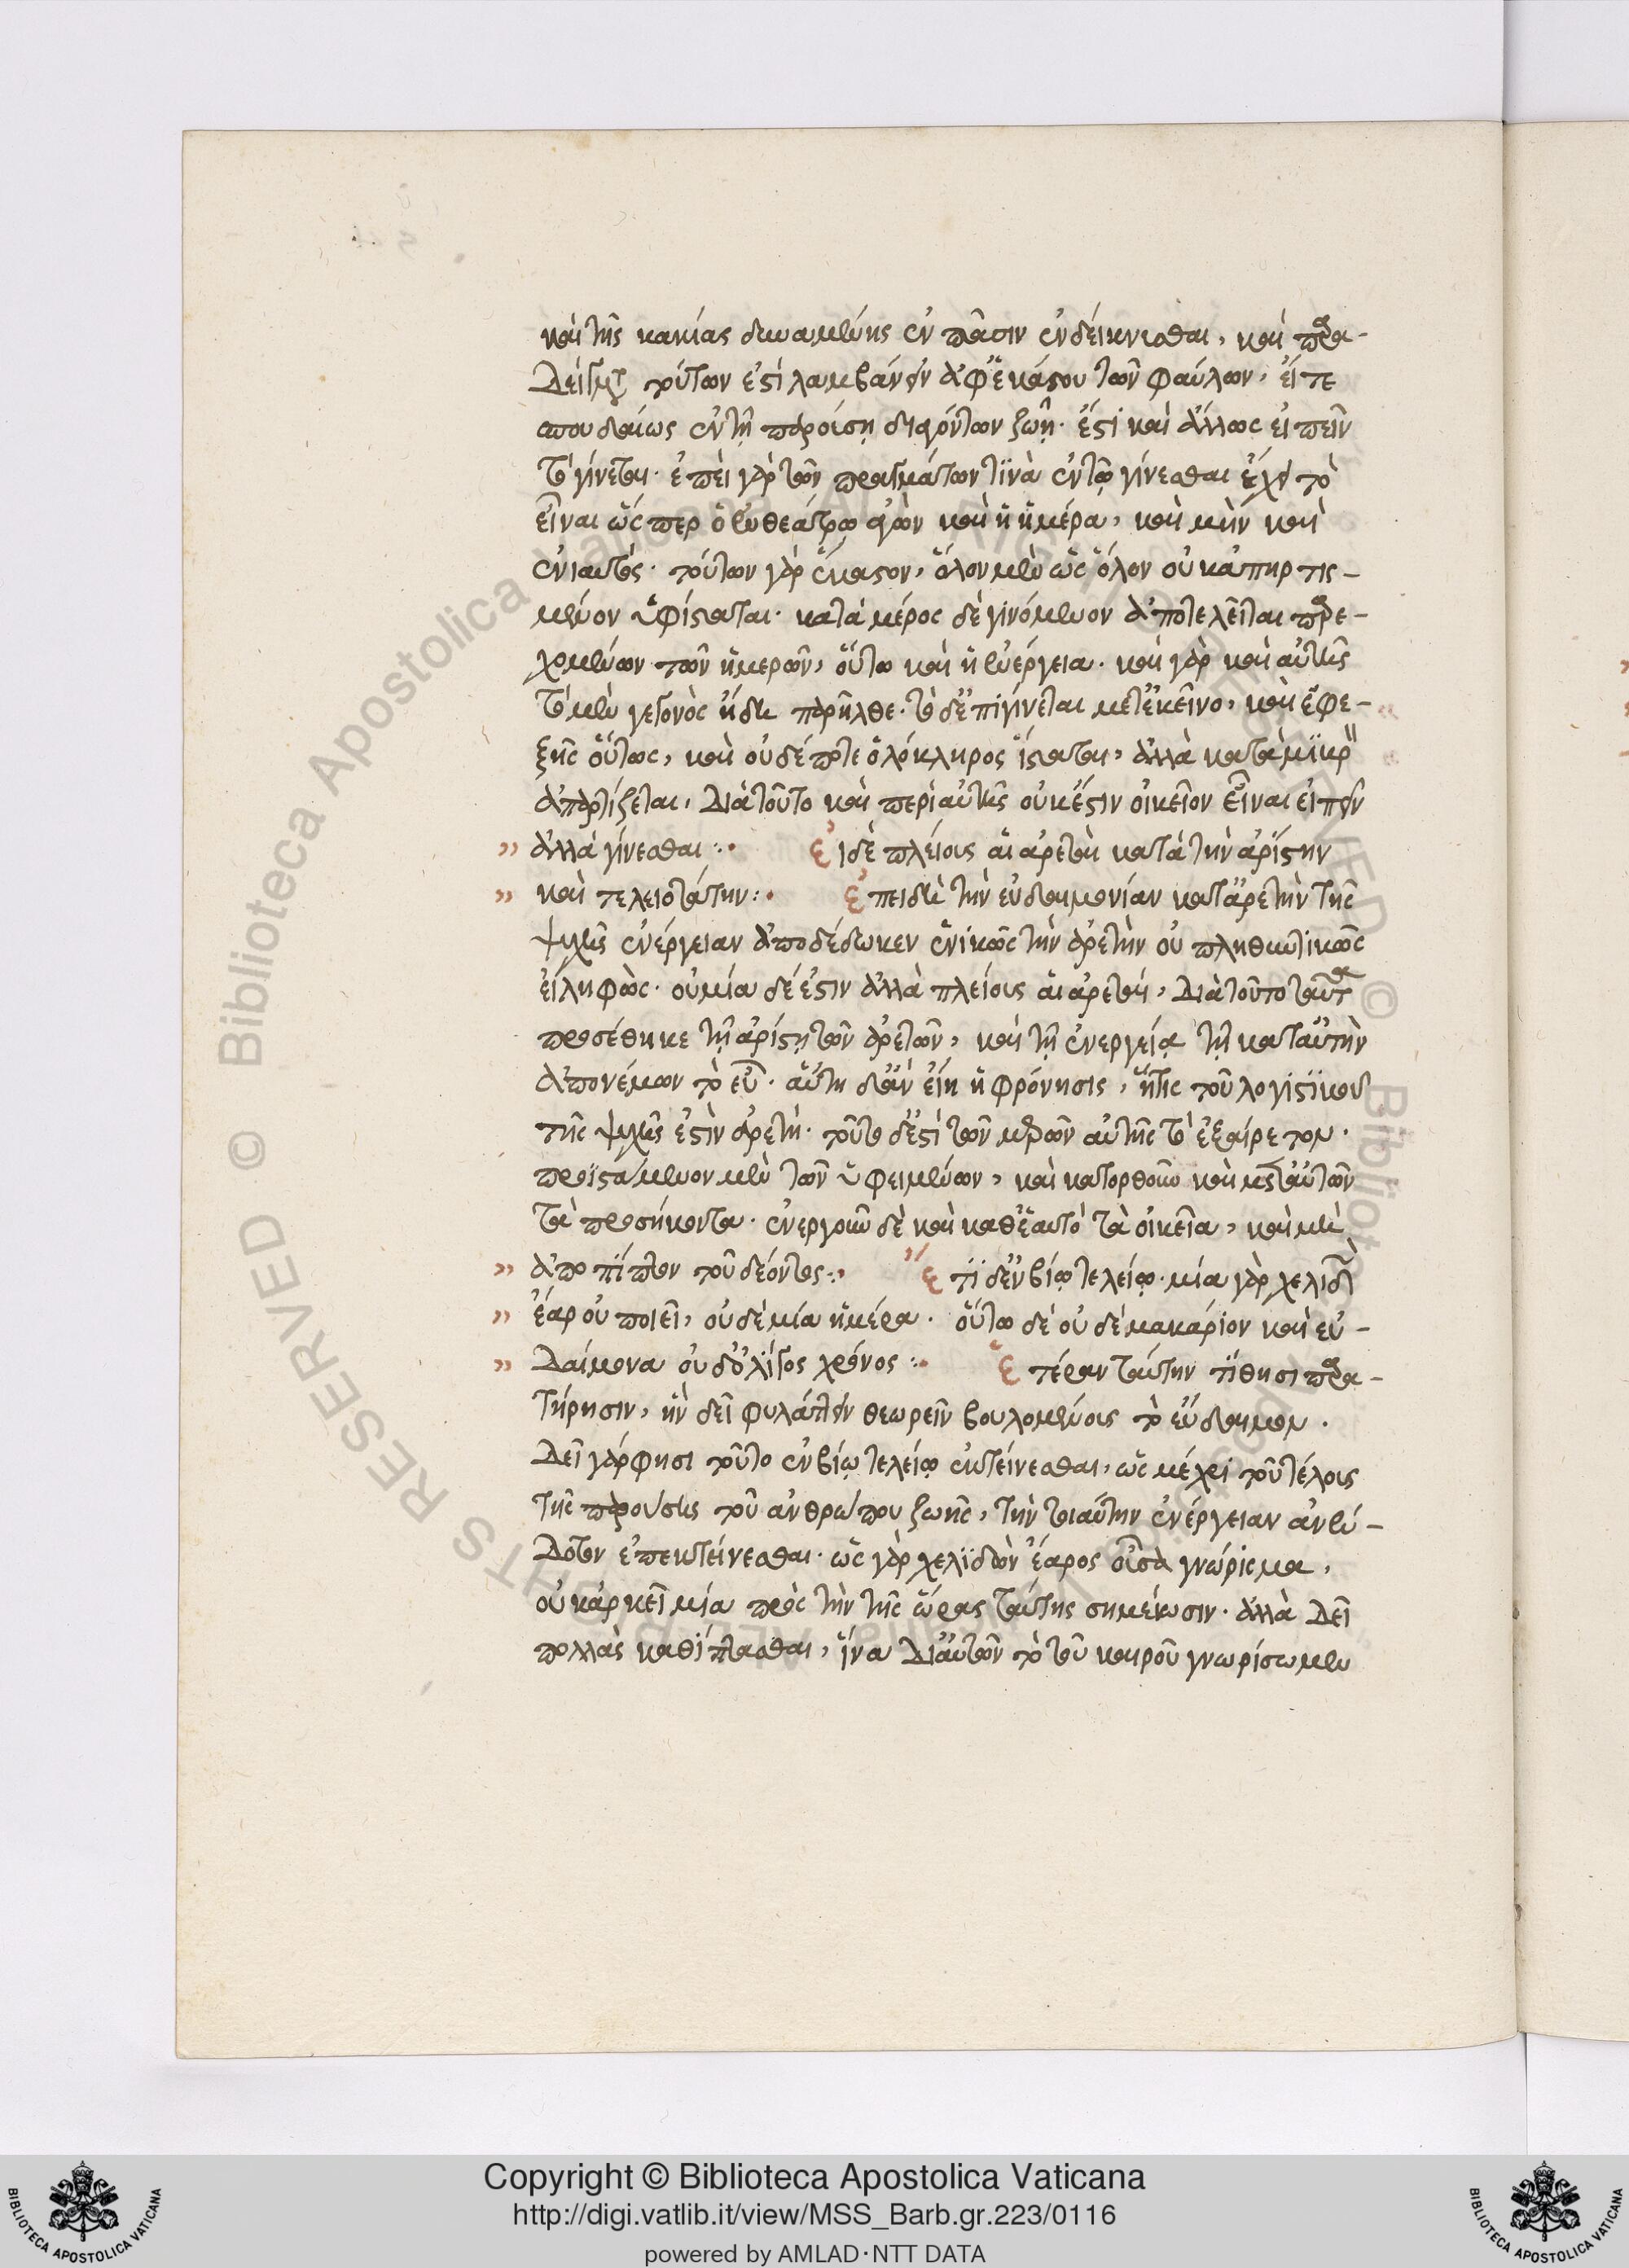 καὶ τῆς κακίας δυναμένης ἐν πᾶσιν ἐνδείκνυσθαι, καὶ παρα-
δείγματα τούτων ἐστὶ λαμβάνειν ἀφ' ἑκάστου τῶν φαύλων, εἴτε
σπουδαίως ἐν τῇ παρούσῃ διαγόντων ζωῇ. ἔστι καὶ ἄλλως εἰπεῖν
τὸ γίνεται. ἐπεὶ γὰρ τῶν πραγμάτων τινὰ ἐν τῷ γίνεσθαι ἔχει τὸ
εἶναι ὥσπερ ὁ ἐν θεάτρῳ ἀγὼν καὶ ἡ ἡμέρα, καὶ μὴν καὶ
ἐνιαυτός. τούτων γὰρ ἕκαστον, ὅλον μὲν ὡς ὅλον οὐκ ἀπηρτισ-
μένον ὑφίσταται. κατὰ μέρος δὲ γινόμενον ἀποτελεῖται παρε-
χομένων τῶν ἡμερῶν, οὕτω καὶ ἡ ἐνέργεια. καὶ γὰρ καὶ αὐτῆς
τὸ μὲν γεγονὸς ἤδη παρῆλθε. τὸ δ' ἐπιγίνεται μετ' ἐκεῖνο, καὶ ἐφε-
ξῆς οὕτως, καὶ οὐδέποτε ὁλόκληρος ἵσταται, ἀλλὰ κατὰ μικρὸν
ἀπαρτίζεται, διὰ τοῦτο καὶ περὶ αὐτῆς οὐκ ἔστιν οἰκεῖον εἶναι εἰπεῖν
» ἀλλὰ γίνεσθαι :· εἰ δὲ πλείους αἱ ἀρεταὶ κατὰ τὴν ἀρίστην
» καὶ τελειοτάτην :· ἐπειδὴ τὴν εὐδαιμονίαν κατ' ἀρετὴν τῆς
ψυχῆς ἐνέργειαν ἀποδέδωκεν ἑνικῶς τὴν ἀρετὴν οὐ πληθυντικῶς
εἰληφώς. οὐ μία δέ ἐστιν ἀλλὰ πλείους αἱ ἀρεταί, διὰ τοῦτο ταῦτα
προσέθηκε τῇ ἀρίστῃ τῶν ἀρετῶν, καὶ τῇ ἐνεργείᾳ τῇ κατ' αὐτὴν
ἀπονέμων τὸ εὖ. αὕτη δ' ἂν εἴη ἡ φρόνησις, ἥτις τοῦ λογιστικοῦ
τῆς ψυχῆς ἐστὶν ἀρετή. τοῦτο δ' ἐστὶ τῶν μερῶν αὐτῆς τὸ ἐξαίρετον.
προϊστάμενον μὲν τῶν ὑφειμένων, καὶ κατορθοῦν καὶ μετ' αὐτῶν
τὰ προσήκοντα. ἐνεργοῦν δὲ καὶ καθ' ἑαυτὸ τὰ οἰκεῖα, καὶ μὴ
» ἀποπίπτον τοῦ δέοντος :· ἔτι δ' ἐν βίῳ τελείῳ. μία γὰρ χελιδὼν
» ἔαρ οὐ ποιεῖ, οὐδὲ μία ἡμέρα. οὕτω δὲ οὐδὲ μακάριον καὶ εὐ-
» δαίμονα οὐδ' ὀλίγος χρόνος :· ἑτέραν ταύτην τίθησι παρα-
τήρησιν, ἣν δεῖ φυλάττειν θεωρεῖν βουλομένοις τὸ εὔδαιμον.
δεῖ γάρ φησι τοῦτο ἐν βίῳ τελείῳ ἐκτείνεσθαι, ὡς μέχρι τοῦ τέλους
τῆς παρούσης τοῦ ἀνθρώπου ζωῆς, τὴν τοιαύτην ἐνέργειαν ἀνέν-
δοτον ἐπεκτείνεσθαι. ὡς γὰρ χελιδὼν ἔαρος οὖσα γνώρισμα,
οὐκ ἀρκεῖ μία πρὸς τὴν τῆς ὥρας ταύτης σημείωσιν. ἀλλὰ δεῖ
πολλὰς καθίπτασθαι, ἵνα δι' αὐτῶν τὸ τοῦ καιροῦ γνωρίσωμεν
Copyright © Biblioteca Apostolica Vaticana
http://digi.vatlib.it/view/MSS_Barb.gr.223/0116
powered by AMLAD·NTT DATA